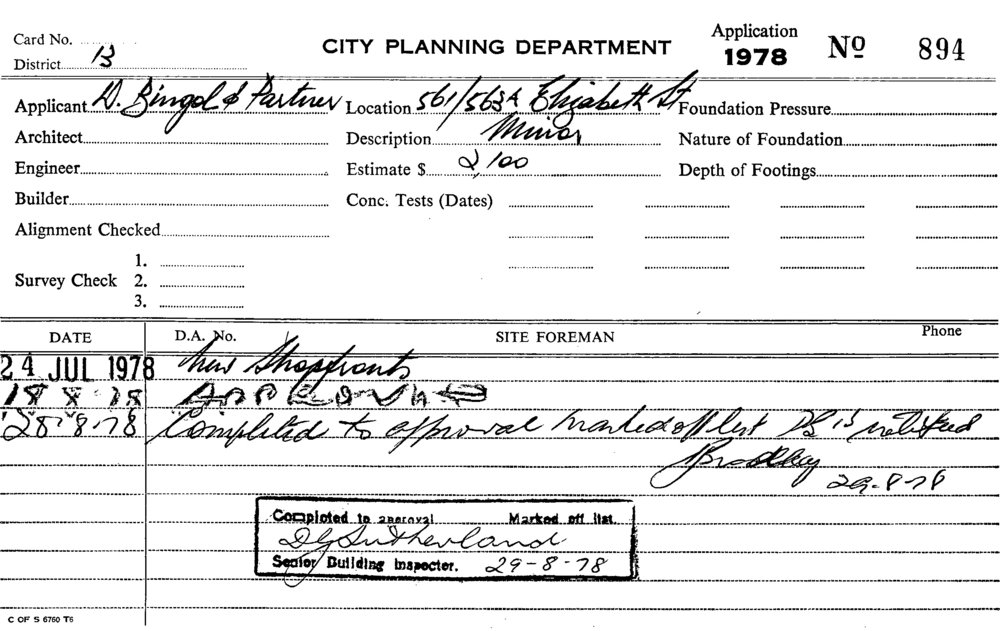 Card No.
Application
CITY PLANNING DEPARTMENT 1978 Nº 894
District 13
Applicant D. Bingol & Partner Location 561/563A Elizabeth St Foundation Pressure
Architect Description Minor Nature of Foundation
Engineer Estimate $ 2,100 Depth of Footings
Builder Conc. Tests (Dates)
Alignment Checked
Survey Check 1.
2.
3.
DATE D.A. No. SITE FOREMAN Phone
24 JUL 1978 New Shopfronts
18 8 78 APPROVED
28-8-78 Completed to approval marked off list notified
29-8-78
Completed to approval Marked off list.
DG Sutherland
Senior Building Inspector. 29-8-78
C OF S 6760 T6